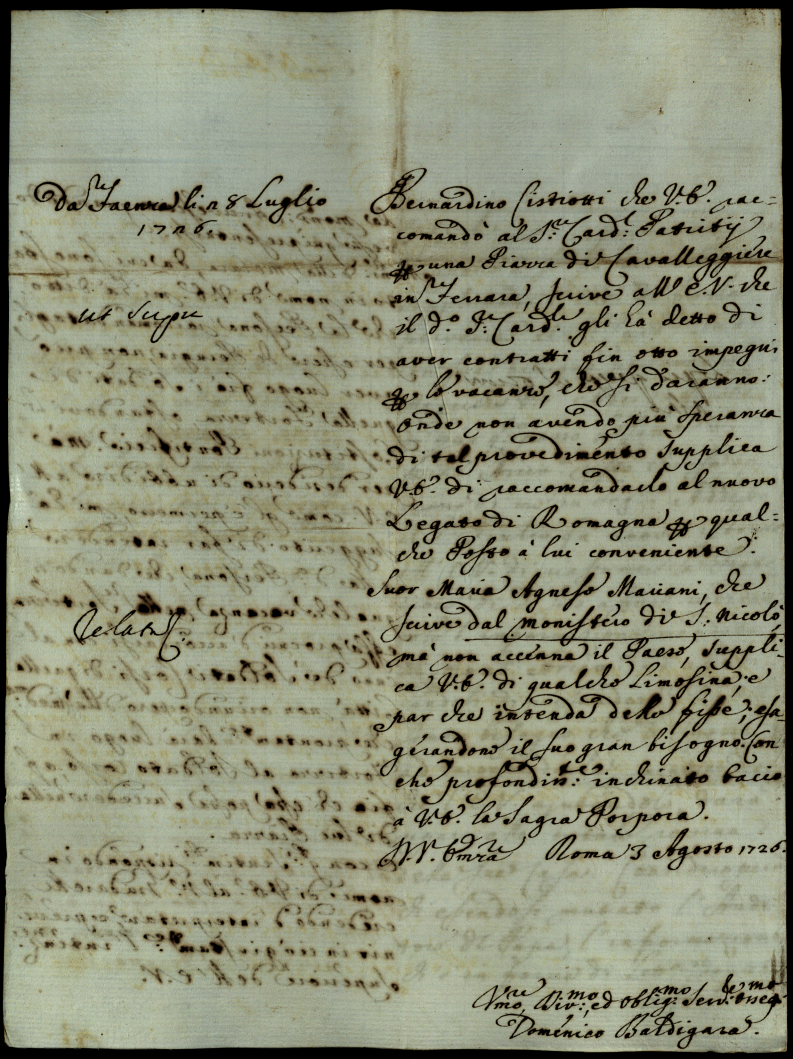 Da Faenza li 28 Luglio
1726
ut supra
Relat.
Bernardino Cistiotti che V.E. rac=
comandò al S.r Card.l Patritij
una Piazza di Cavalleggiere
in Ferrara, scrive all' E.V. che
il d.o S.r Card.le gli hà detto di
aver contratti fin otto impegni
le vacanze, che si daranno:
Onde non avendo più speranza
di tal provedimento supplica
V.E. di raccomandarlo al nuovo
Legato di Romagna qual=
che Posto à lui conveniente.
Suor Maria Agnese Mariani, che
scrive dal monistero di S. Nicolò,
mà non accenna il Paese, suppli=
ca V.E. di qualche Limosina, e
par che intenda delle fisse, esa=
gerandone il suo gran bisogno. Con
che profondm.te inchinato bacio
à V.E. la Sagra Porpora.
Roma 3 Agosto 1726.
Div.mo, ed oblig.mo Serv.
Domenico Baldigara.